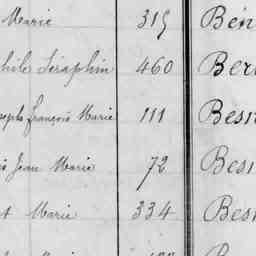 Marie 315 Bén
phile Séraphin 460 Ber
oseph françois Marie 111 Besn
is Jean Marie 72 Besn
Marie 334 Besn